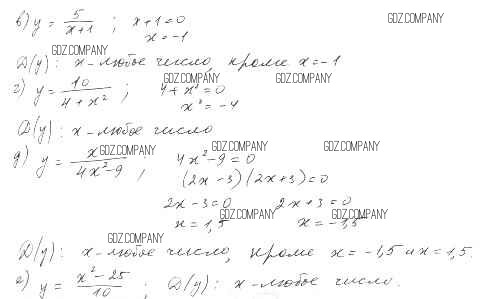 в) y = 5/(x+1) ; x+1=0
x=-1
D(y): x-любое число, кроме x=-1
г) y = 10/(4+x²) ; 4+x²=0
x²=-4
D(y): x-любое число
д) y = x/(4x²-9) , 4x²-9=0
(2x-3)(2x+3)=0
2x-3=0 2x+3=0
x=1,5 x=-1,5
D(y): x-любое число, кроме x=-1,5 и x=1,5.
е) y = (x²-25)/10 ; D(y): x-любое число.
GDZ.COMPANY
GDZ.COMPANY
GDZ.COMPANY
GDZ.COMPANY
GDZ.COMPANY
GDZ.COMPANY
GDZ.COMPANY
GDZ.COMPANY
GDZ.COMPANY
GDZ.COMPANY